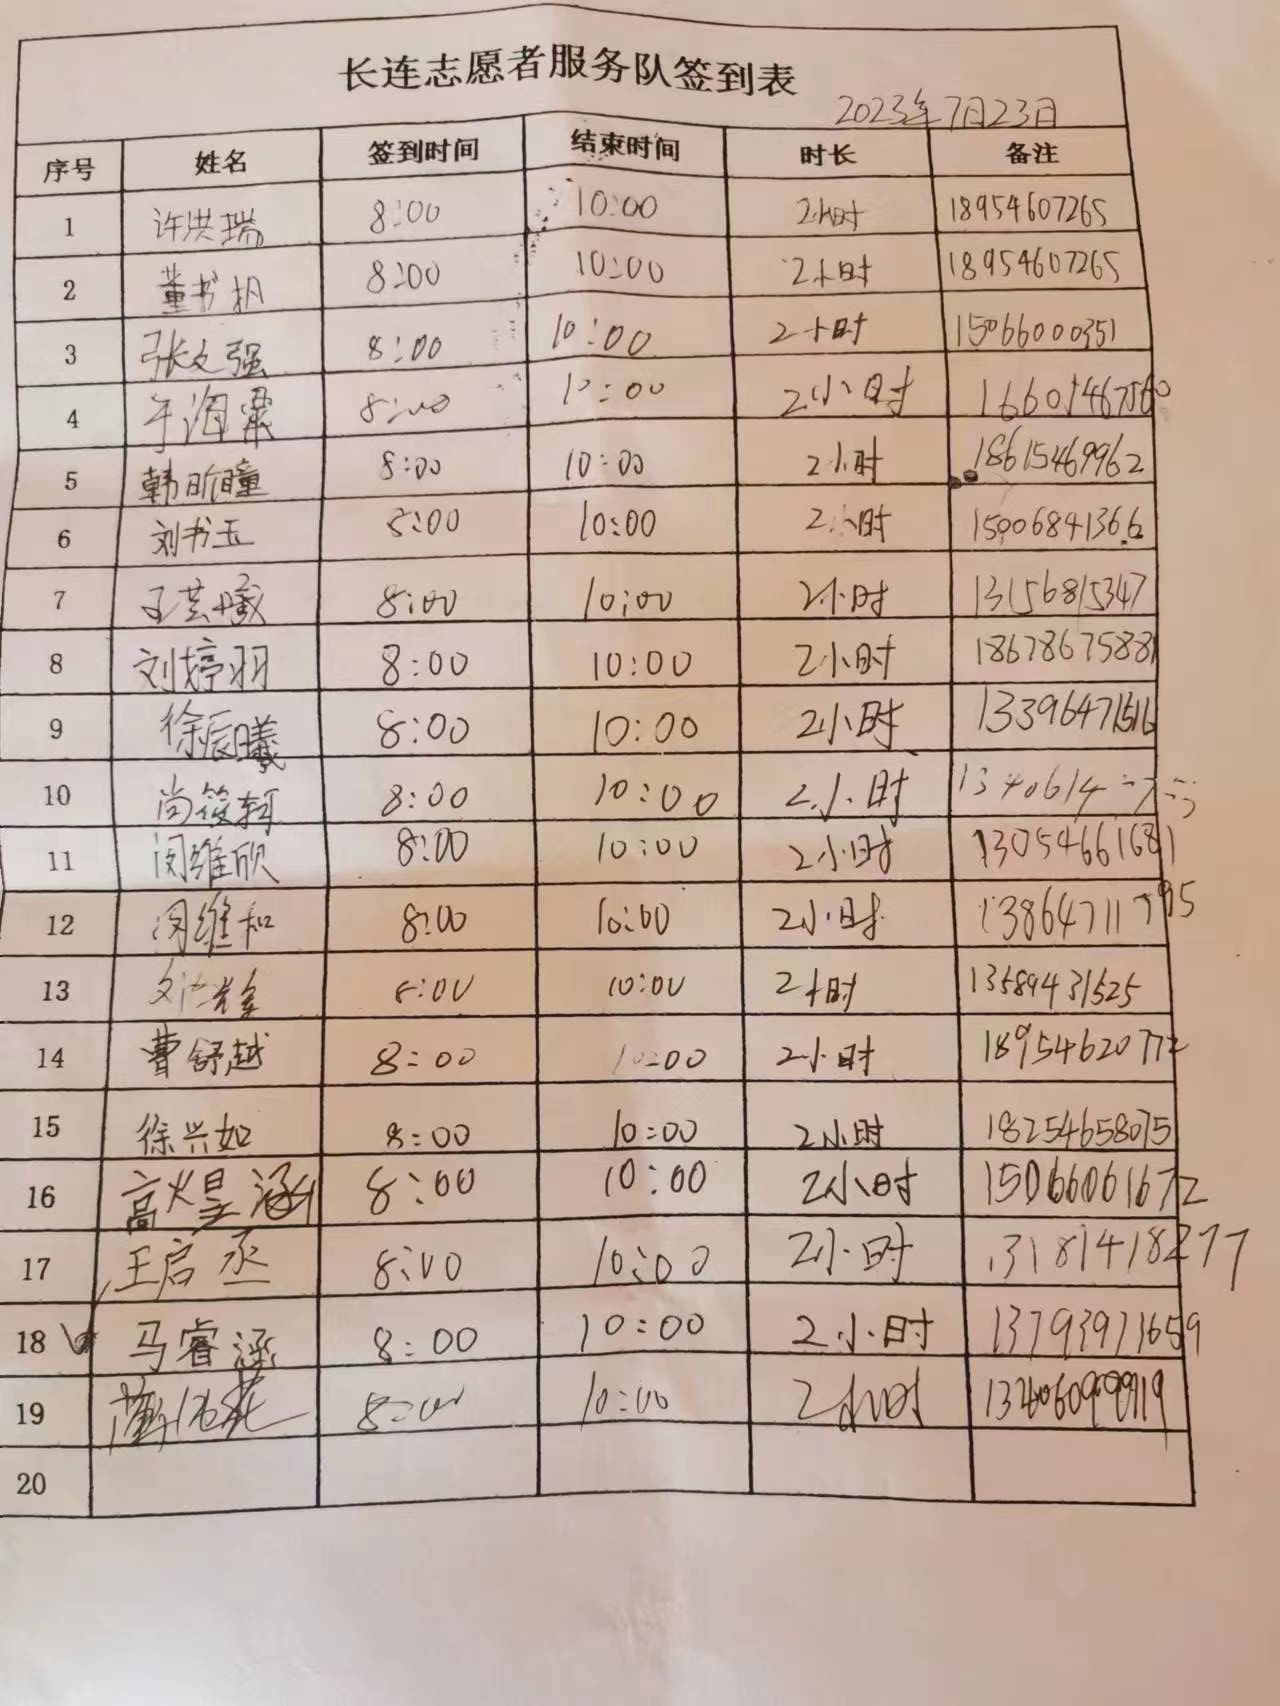 长连志愿者服务队签到表
2023年7月23日
序号 姓名 签到时间 结束时间 时长 备注
1 许洪瑞 8:00 10:00 2小时 18954607265
2 董书杋 8:00 10:00 2小时 18954607265
3 张文强 8:00 10:00 2小时 15066000351
4 8:00 10:00 2小时
5 韩昕瞳 8:00 10:00 2小时 18615469962
6 刘书玉 8:00 10:00 2小时 15006841366
7 王芸曦 8:00 10:00 2小时 13156815347
8 刘婷羽 8:00 10:00 2小时 18678675881
9 徐辰曦 8:00 10:00 2小时 13396471516
10 尚筱轲 8:00 10:00 2小时
11 闵维欣 8:00 10:00 2小时 13054661681
12 闵维和 8:00 10:00 2小时 13864711795
13 8:00 10:00 2小时 13589431525
14 曹舒越 8:00 10:00 2小时 18954620772
15 徐兴如 8:00 10:00 2小时 18254658075
16 高煜涵 8:00 10:00 2小时 15066061672
17 王启丞 8:00 10:00 2小时 13181418277
18 马睿涵 8:00 10:00 2小时 13793971659
19 8:00 10:00 2小时
20